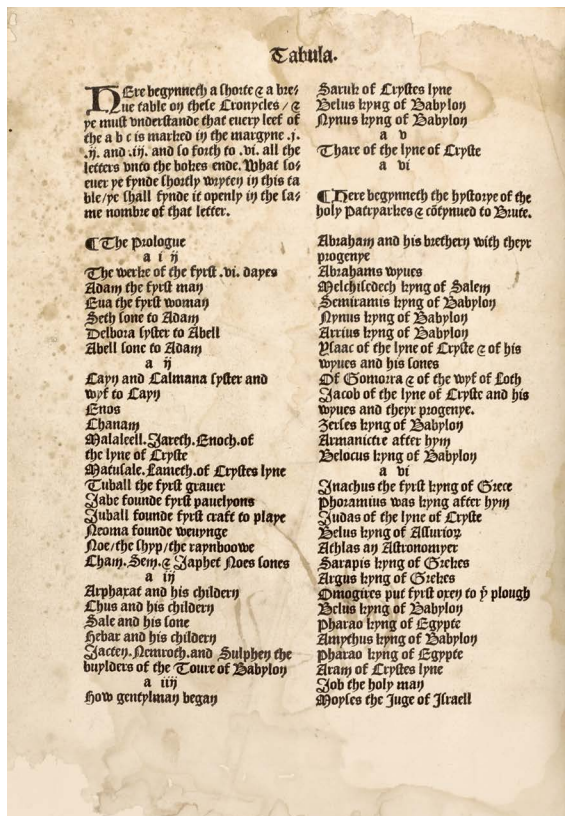 Tabula.
HEre begynneth a shorte & a bre⸗
ue table on these Cronycles / &
ye must vnderstande that euery leef of
the a b c is marked in the margyne .j.
.ij. and .iij. and so forth to .vi. all the
letters vnto the bokes ende. What so⸗
euer ye fynde shortly wryten in this ta
ble/ye shall fynde it openly in the sa⸗
me nombre of that letter.
¶ The prologue
a i ij
The werke of the fyrst .vi. dayes
Adam the fyrst man
Eua the fyrst woman
Seth sone to Adam
Delbora syster to Abell
Abell sone to Adam
a ij
Cayn and Calmana syster and
wyf to Cayn
Enos
Chanam
Malaleell. Jareth. Enoch. of
the lyne of Cryste
Matusale. Lameth. of Crystes lyne
Tuball the fyrst grauer
Jabe founde fyrst pauelyons
Juball founde fyrst craft to playe
Neoma founde weuynge
Noe/the shyp/the raynboowe
Cham. Sem. & Japhet Noes sones
a iij
Arpharat and his childern
Chus and his childern
Sale and his sone
Hebar and his childern
Jacten. Nemroth. and Sulphen the
buylders of the Toure of Babylon
a iiij
How gentylman began
Saruk of Crystes lyne
Belus kyng of Babylon
Nynus kyng of Babylon
a v
Thare of the lyne of Cryste
a vi
¶ Here begynneth the hystorye of the
holy Patryarkes & cōtynued to Brute.
Abraham and his brethern with theyr
progenye
Abrahams wyues
Melchisedech kyng of Salem
Semiramis kyng of Babylon
Nynus kyng of Babylon
Arrius kyng of Babylon
Ysaac of the lyne of Cryste & of his
wyues and his sones
Of Gomorra & of the wyf of Loth
Jacob of the lyne of Cryste and his
wyues and theyr progenye.
Zerses kyng of Babylon
Armanictre after hym
Belocus kyng of Babylon
a vi
Jnachus the fyrst kyng of Grece
Phoramius was kyng after hym
Judas of the lyne of Cryste
Belus kyng of Assurior
Athlas an Astronomyer
Sarapis kyng of Grekes
Argus kyng of Grekes
Omogires put fyrst oxen to ẏ plough
Belus kyng of Babylon
Pharao kyng of Egypte
Amythus kyng of Babylon
Pharao kyng of Egypte
Aram of Crystes lyne
Job the holy man
Moyses the Juge of Jsraell